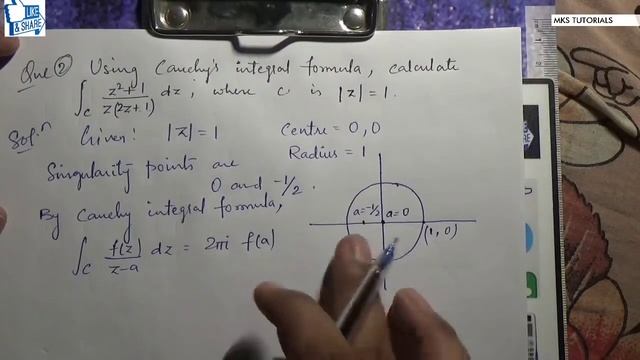 LIKE
& SHARE
MKS TUTORIALS
Que ② Using Cauchy's integral formula, calculate
∫_C (z²+1)/(z(2z+1)) dz, where c is |z| = 1.
Sol.ⁿ Given: |z| = 1 Centre = 0,0
Radius = 1
Singularity points are
0 and -1/2.
By Cauchy integral formula,
a=-1/2 a=0
(1,0)
∫_C f(z)/(z-a) dz = 2πi f(a)